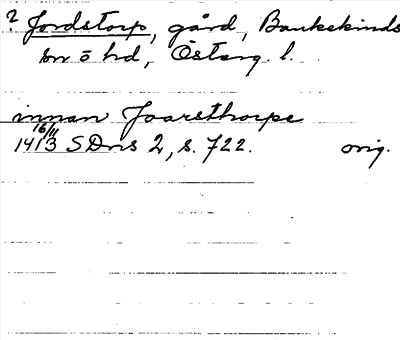 ? Jordstorp, gård, Bankekinds
sn o hd, Österg. l.
innan Joarsthorpe
16/11
1413 SDns 2, s. 722. orig.